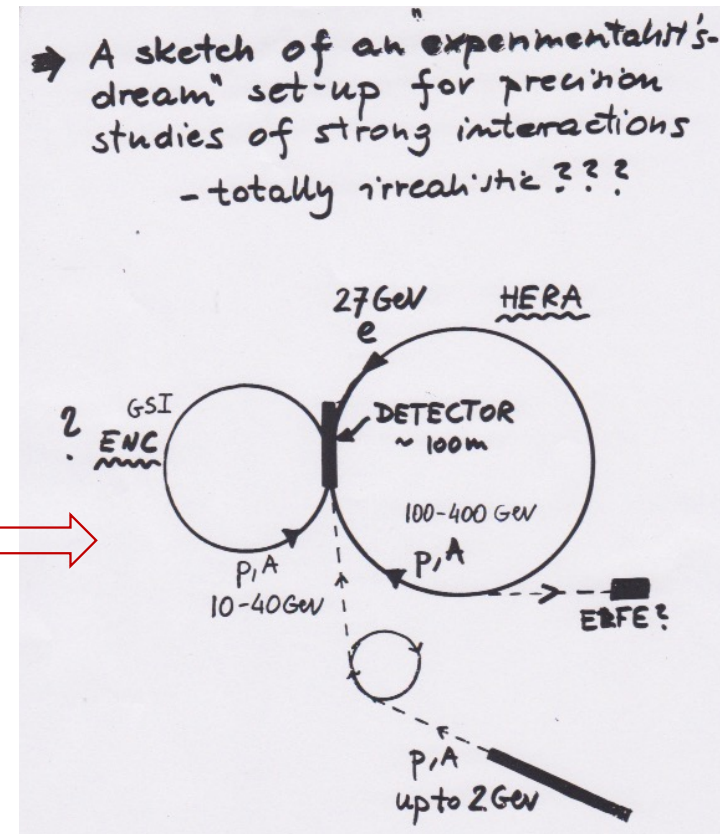 ⇒ A sketch of an "experimentalist's-
dream" set-up for precision
studies of strong interactions
- totally irrealistic ???
27 GeV
HERA
e
GSI
?
ENC
DETECTOR
~ 100m
100-400 GeV
p, A
p, A
10-40 GeV
ELFE?
p, A
up to 2 GeV